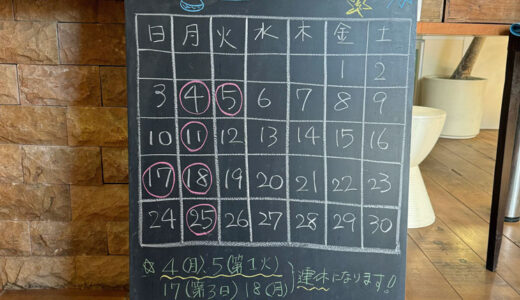 日 月 火 水 木 金 土
1 2
3 4 5 6 7 8 9
10 11 12 13 14 15 16
17 18 19 20 21 22 23
24 25 26 27 28 29 30
☆ 4(月)、5(第1火)
17(第3日) 18(月)
連休になります!